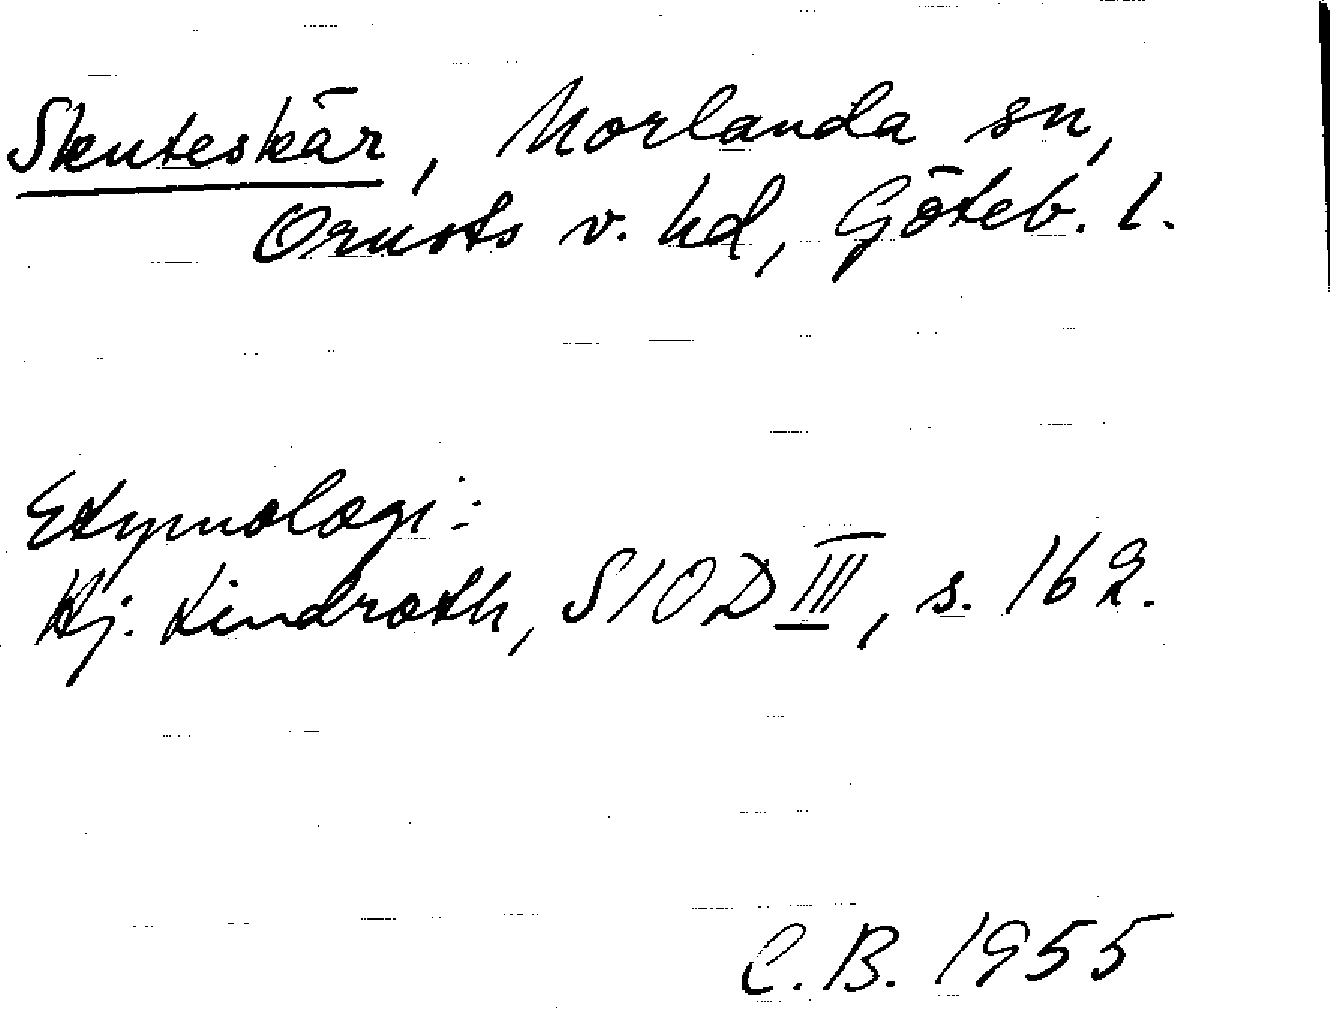 Skuteskär, Morlanda sn,
Orusts v. hd, Göteb. l.
Etymologi:
Hj. Lindroth, SIOD III, s. 162.
C.B. 1955